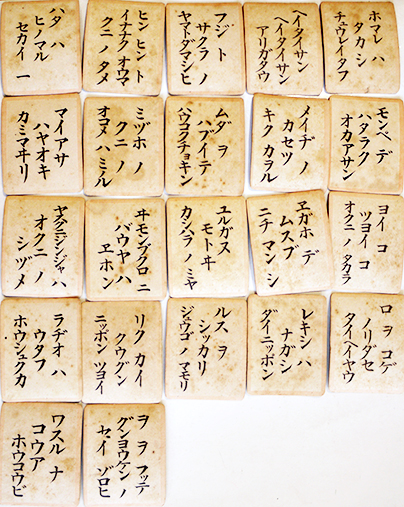 ハタ ハ
ヒノマル
セカイ 一
ヒン ヒント
イナナク オウマ
クニ ノ タメ
フジ ト
サクラ ノ
ヤマトダマシヒ
ヘイタイサン
ヘイタイサン
アリガタウ
ホマレ ハ
タカシ
チュウレイタフ
マイアサ
ハヤオキ
カミマヰリ
ミヅホ ノ
クニ ノ
オコメ ハ ミノル
ムダ ヲ
ハブイテ
ハウコクチョキン
メイヂ ノ
カセツ
キク カヲル
モンペ デ
ハタラク
オカアサン
ヤスクニジンジャ ハ
オクニ ノ
シヅメ
ヰモンブクロ ニ
バウヤ ハ
ヱホン
ユルガヌ
モトヰ
カシハラ ノ ミヤ
ヱガホ デ
ムスブ
ニチ マン シ
ヨイ コ
ツヨイ コ
オクニ ノ タカラ
ラヂオ ハ
ウタフ
ホウシュクカ
リク カイ
クウグン
ニッポン ツヨイ
ルス ヲ
シッカリ
ジュウゴ ノ マモリ
レキシ ハ
ナガシ
ダイニッポン
ロ ヲ コゲ
ノリダセ
タイヘイヤウ
ワスル ナ
コウア
ホウコウビ
ヲ ヲ フッテ
グンヨウケン ノ
セイ ゾロヒ